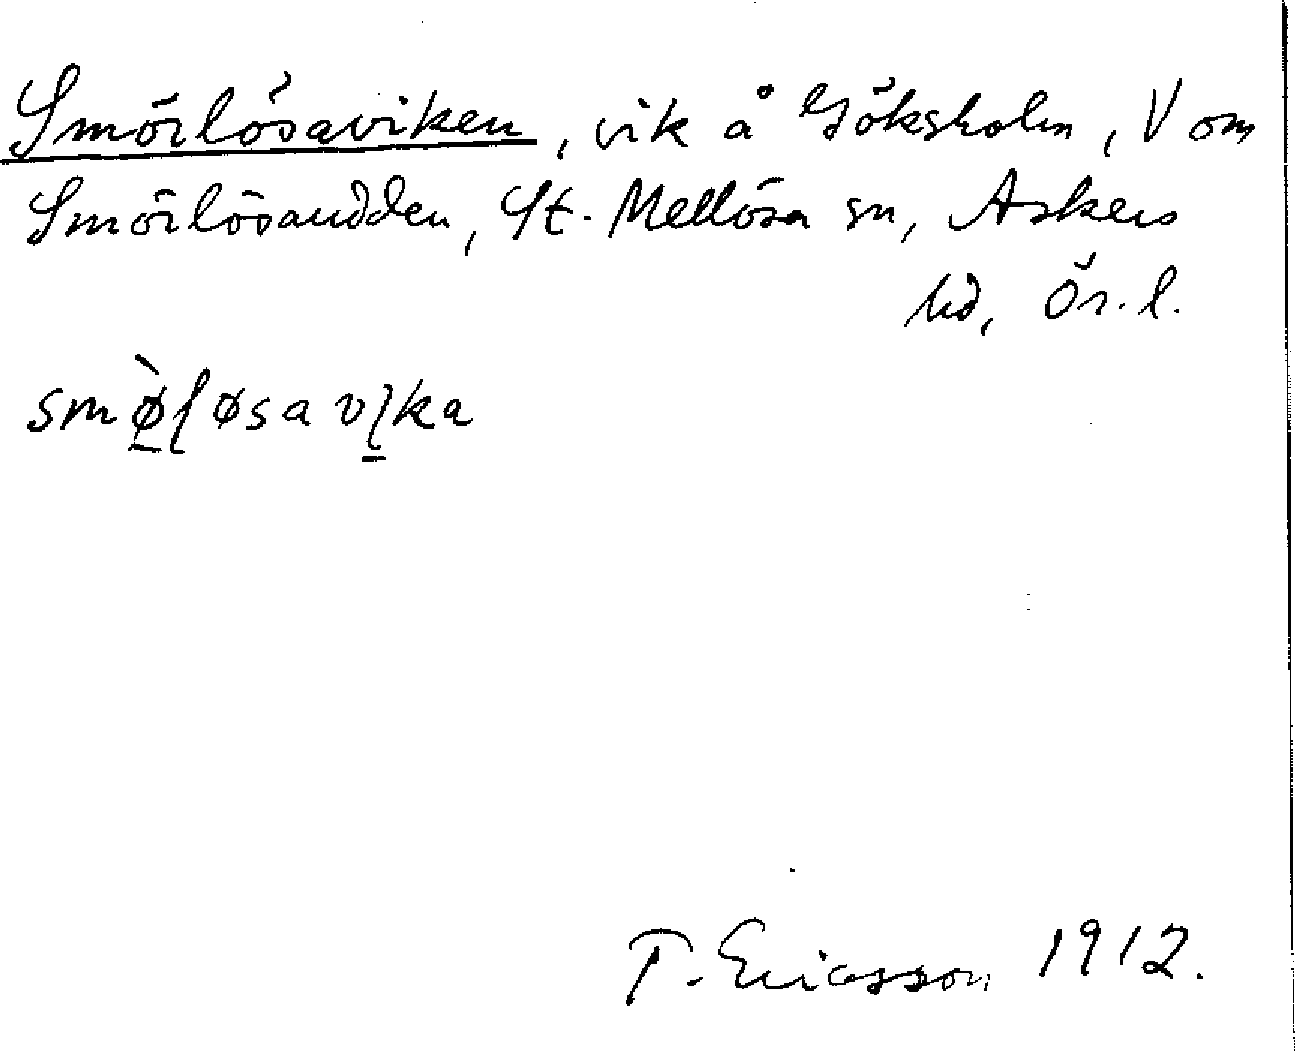 Smörlösaviken, vik å Göksholm, V om
Smörlösaudden, St. Mellösa sn, Askers
hd, Ör. l.
smø̀løsavıka
T. Ericsson 1912.